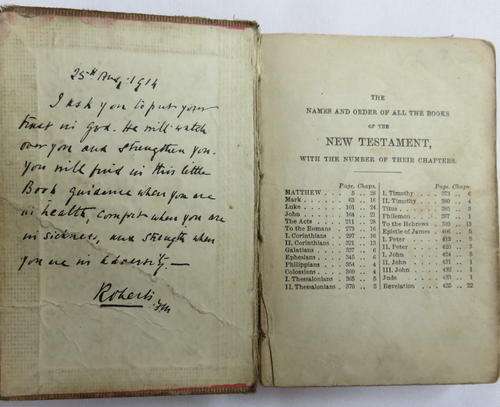 25th Aug. 1914
I ask you to put your
trust in God. He will watch
over you and strengthen you.
You will find in this little
Book guidance when you are
in health, comfort when you are
in sickness, and strength when
you are in adversity.—
Roberts
FM
THE
NAMES AND ORDER OF ALL THE BOOKS
OF THE
NEW TESTAMENT,
WITH THE NUMBER OF THEIR CHAPTERS.
Page. Chaps.
MATTHEW .. 5 .. 28
Mark .. 63 .. 16
Luke .. 101 .. 24
John .. 164 .. 21
The Acts .. 211 .. 28
To the Romans .. 273 .. 16
I. Corinthians .. 297 .. 16
II. Corinthians .. 321 .. 13
Galatians .. 337 .. 6
Ephesians .. 345 .. 6
Philippians .. 354 .. 4
Colossians .. 360 .. 4
I. Thessalonians .. 365 .. 5
II. Thessalonians .. 370 .. 3
Page. Chaps.
I. Timothy .. 373 .. 6
II. Timothy .. 380 .. 4
Titus .. 3
Philemon .. 1
To the Hebrews .. 13
Epistle of James .. 5
I. Peter .. 5
II. Peter .. 3
I. John .. 5
II. John .. 431 .. 1
III. John .. 1
Jude .. 1
Revelation .. 435 .. 22